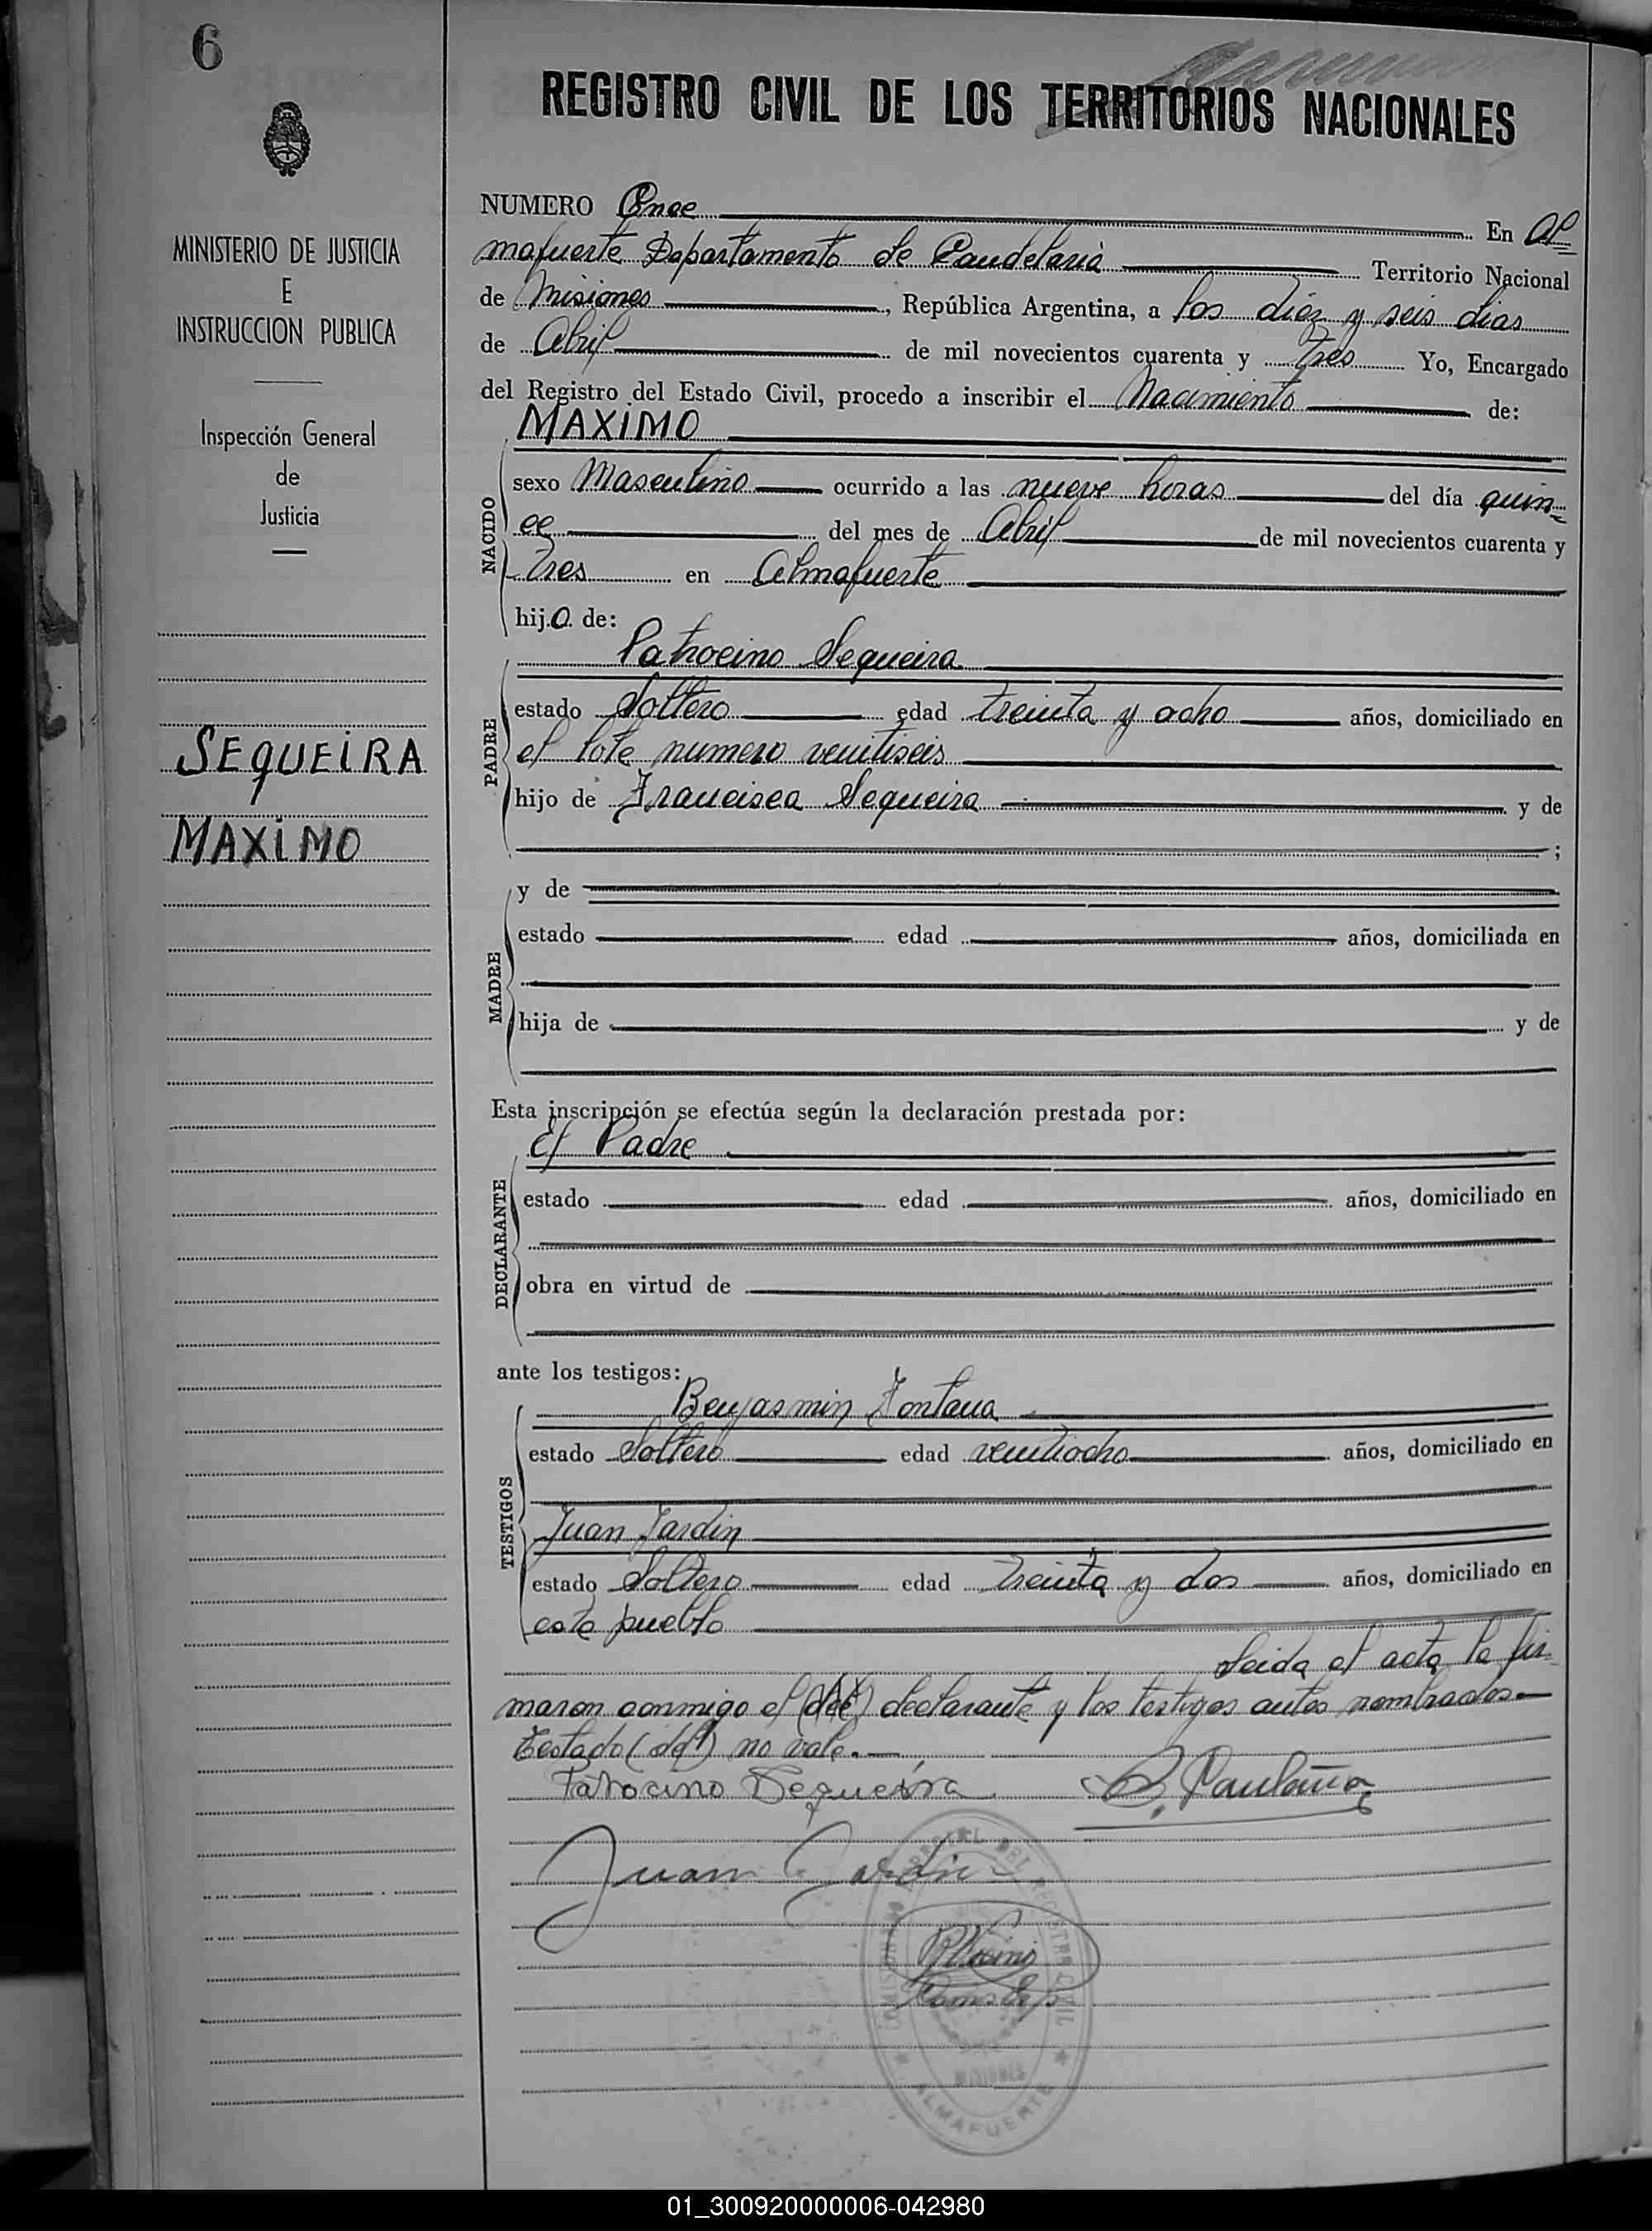 6
MINISTERIO DE JUSTICIA
E
INSTRUCCION PUBLICA
Inspección General
de
Justicia
SEQUEIRA
MAXIMO
REGISTRO CIVIL DE LOS TERRITORIOS NACIONALES
NUMERO Once En Al
mafuerte Dapartamento de Candelaria Territorio Nacional
de Misiones, República Argentina, a los diéz y seis dias
de Abril de mil novecientos cuarenta y tres Yo, Encargado
del Registro del Estado Civil, procedo a inscribir el Nacimiento de:
MAXIMO
NACIDO
sexo Masculino ocurrido a las nueve horas del día quin
ce del mes de Abril de mil novecientos cuarenta y
tres en Almafuerte
hijo de:
Patrocino Sequeira
PADRE
estado Soltero edad treinta y ocho años, domiciliado en
el lote numero veintiseis
hijo de Francisca Sequeira y de
;
MADRE
y de
estado edad años, domiciliada en
hija de y de
Esta inscripción se efectúa según la declaración prestada por:
El Padre
DECLARANTE
estado edad años, domiciliado en
obra en virtud de
ante los testigos:
TESTIGOS
Benjasmin Fontana
estado Soltero edad veintiocho años, domiciliado en
Juan Jardin
estado Soltero edad treinta y dos años, domiciliado en
este pueblo
Leida el acta la fir
maron conmigo el (del) declarante y los testigos antes nombrados
Testado (del) no vale.
Patrocino Sequeira
Juan Jardin
REGISTRO CIVIL
MISIONES
ALMAFUERTE
01_300920000006-042980